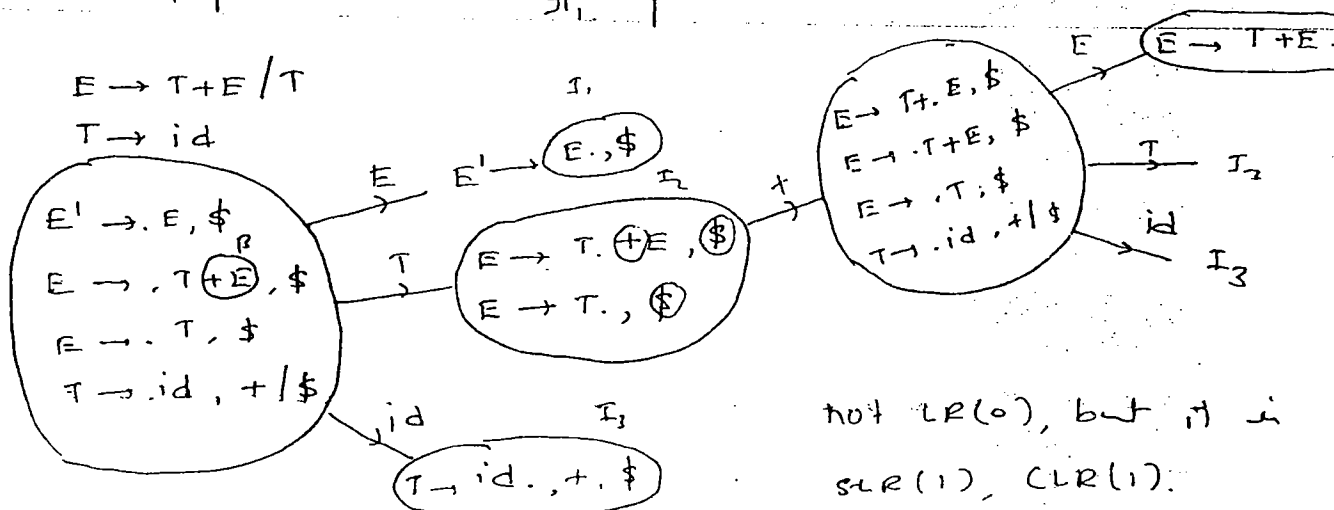 E → T+E / T
T → id
E' → . E, $
β
E → . T + E, $
E → . T, $
T → .id, +/$
E
E' → E., $
I₁
T
I₂
E → T. + E, $
E → T., $
id
I₃
T → id., +, $
+
E → T+. E, $
E → .T+E, $
E → .T, $
T → .id, +/$
E
E → T+E.
T
I₂
id
I₃
not LR(0), but it is
SLR(1), CLR(1).